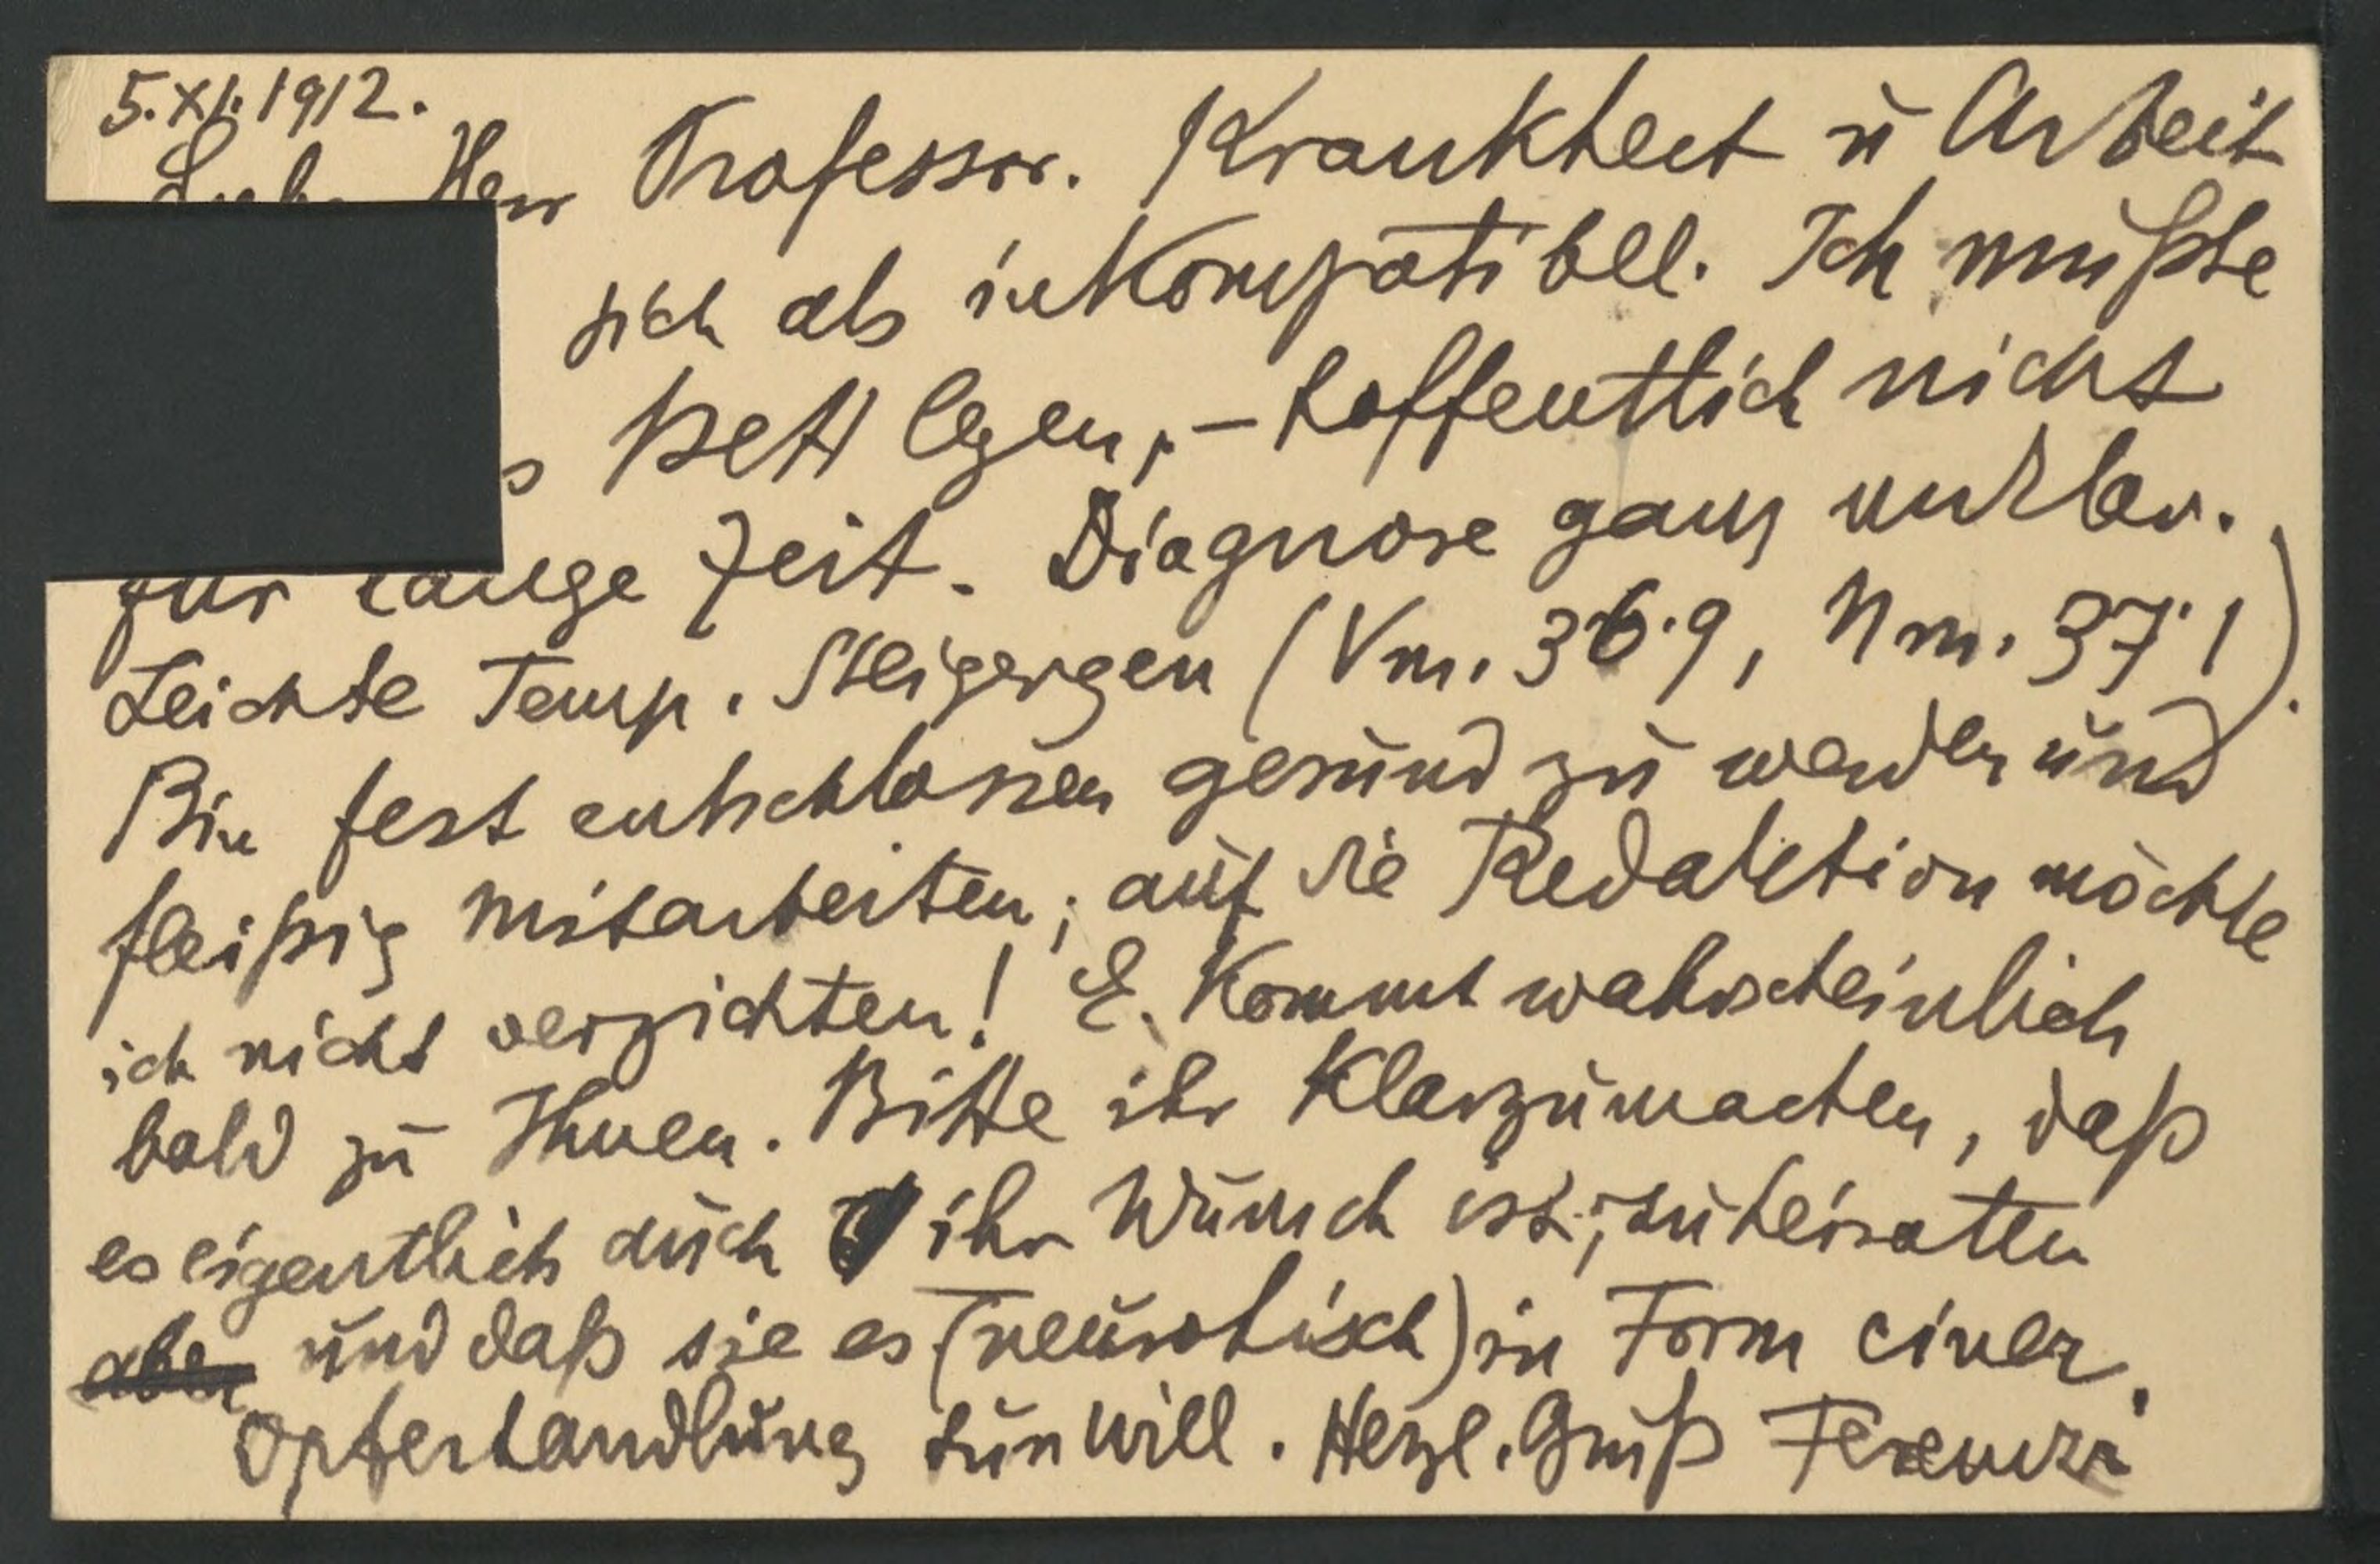 5.XI.1912.
Herr Professor. Krankheit u Arbeit
sich als inkompatibel. Ich müßte
s Bett legen, – hoffentlich nicht
für lange Zeit. Diagnose ganz unklar.
Leichte Temp. Steigergen (Vm. 36·9, Nm. 37·1).
Bin fest entschlossen gesund zu werden und
fleißig mitarbeiten; auf die Redaktion möchte
ich nicht verzichten! E. kommt wahrscheinlich
bald zu Ihnen. Bitte ihr klarzumachen, daß
es eigentlich auch ihr Wunsch ist, zu heiraten
aber und daß sie es (neurotisch) in Form einer
Opferhandlung tun will. Herzl. Gruß Ferenczi